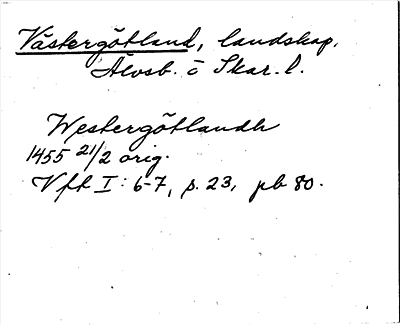 Västergötland, landskap.
Älvsb. o Skar. l.
Westergötlandh
1455 21/2 orig.
Vft I: 6-7, s. 23, pb 80.